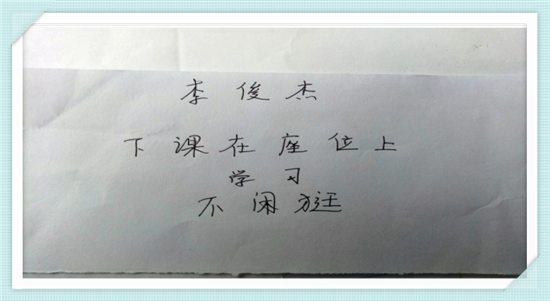 李俊杰
下课在座位上
学习
不闲逛